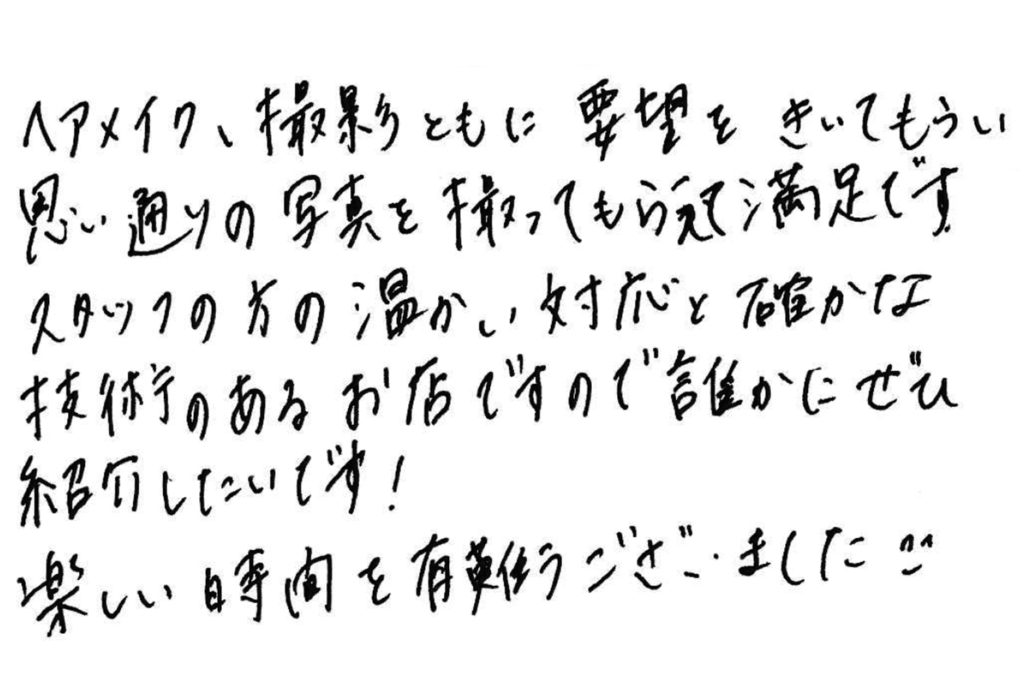 ヘアメイク、撮影ともに要望をきいてもらい
思い通りの写真を撮ってもらえて満足です
スタッフの方の温かい対応と確かな
技術のあるお店ですので誰かにぜひ
紹介したいです!
楽しい時間を有難うございました